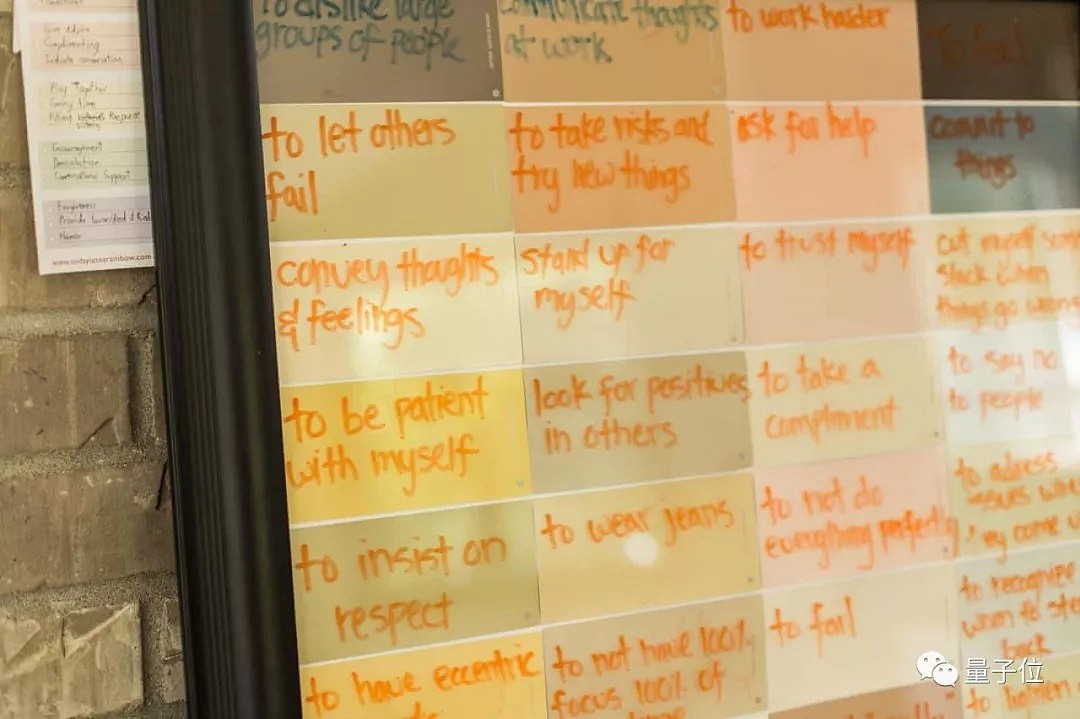 Give advice
Complimenting
Initiate conversation
Play Together
Giving time
Encouragement
Consolation
Support
Forgiveness
Humor
to dislike large
groups of people
communicate thoughts
at work
to work harder
to feel
to let others
fail
to take risks and
try new things
ask for help
commit to
things
convey thoughts
& feelings
stand up for
myself
to trust myself
cut myself some
slack when
things go wrong
to be patient
with myself
look for positives
in others
to take a
compliment
to say no
to people
to insist on
respect
to wear jeans
to not do
everything perfectly
to adress
issues
come
to have eccentric
to not have 100%
focus 100% of
to fail
to recognize
back
量子位